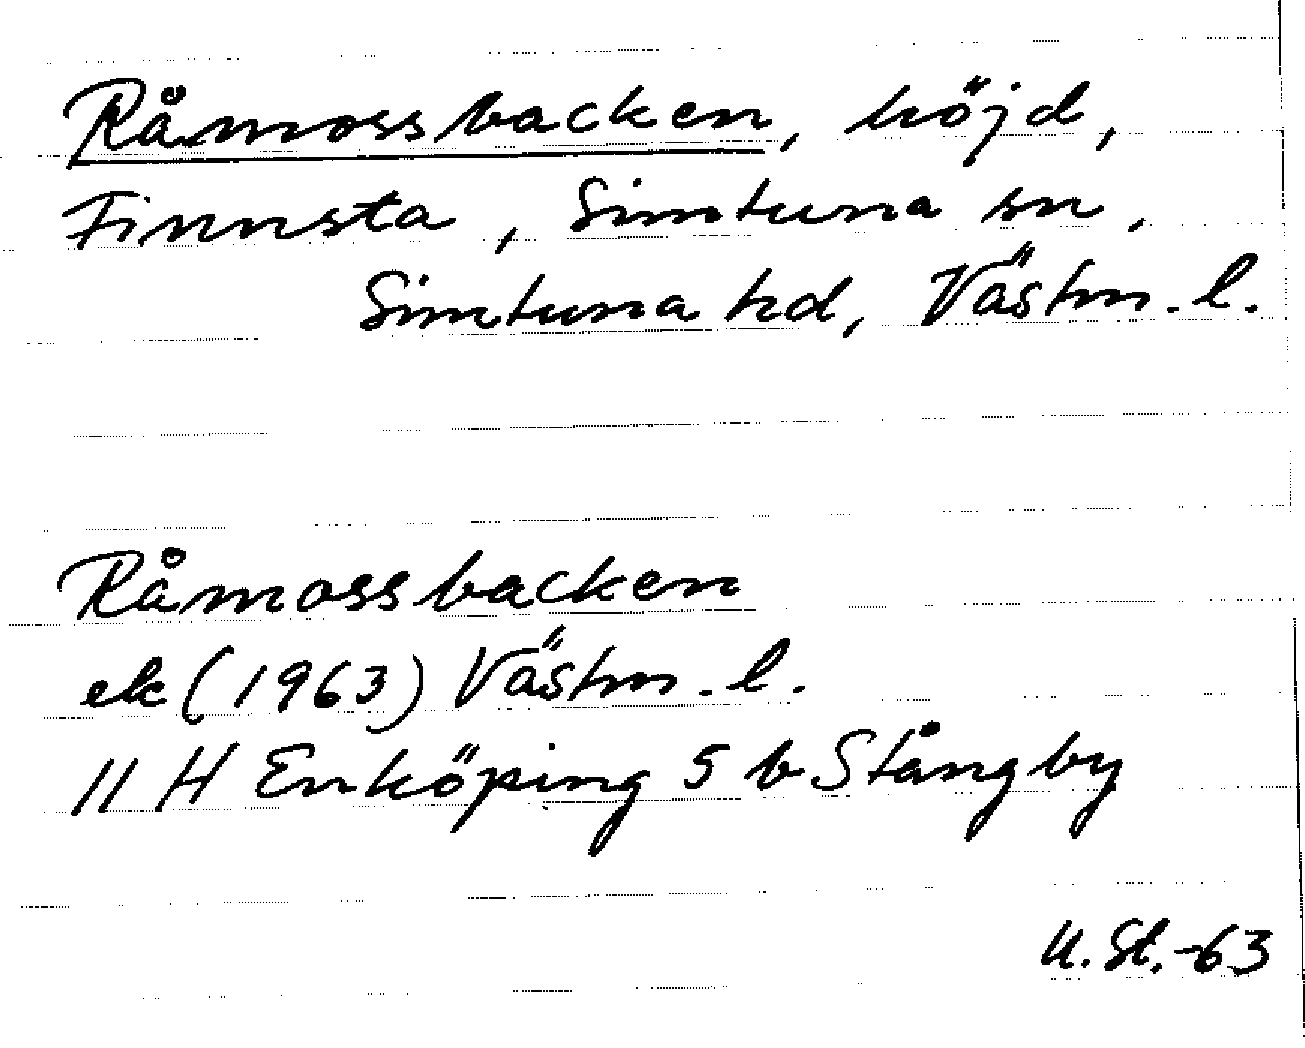 Råmossbacken, höjd,
Finnsta, Simtuna sn,
Simtuna hd, Västm. l.
Råmossbacken
ek (1963) Västm. l.
11 H Enköping 5 b Stångby
U. St. -63